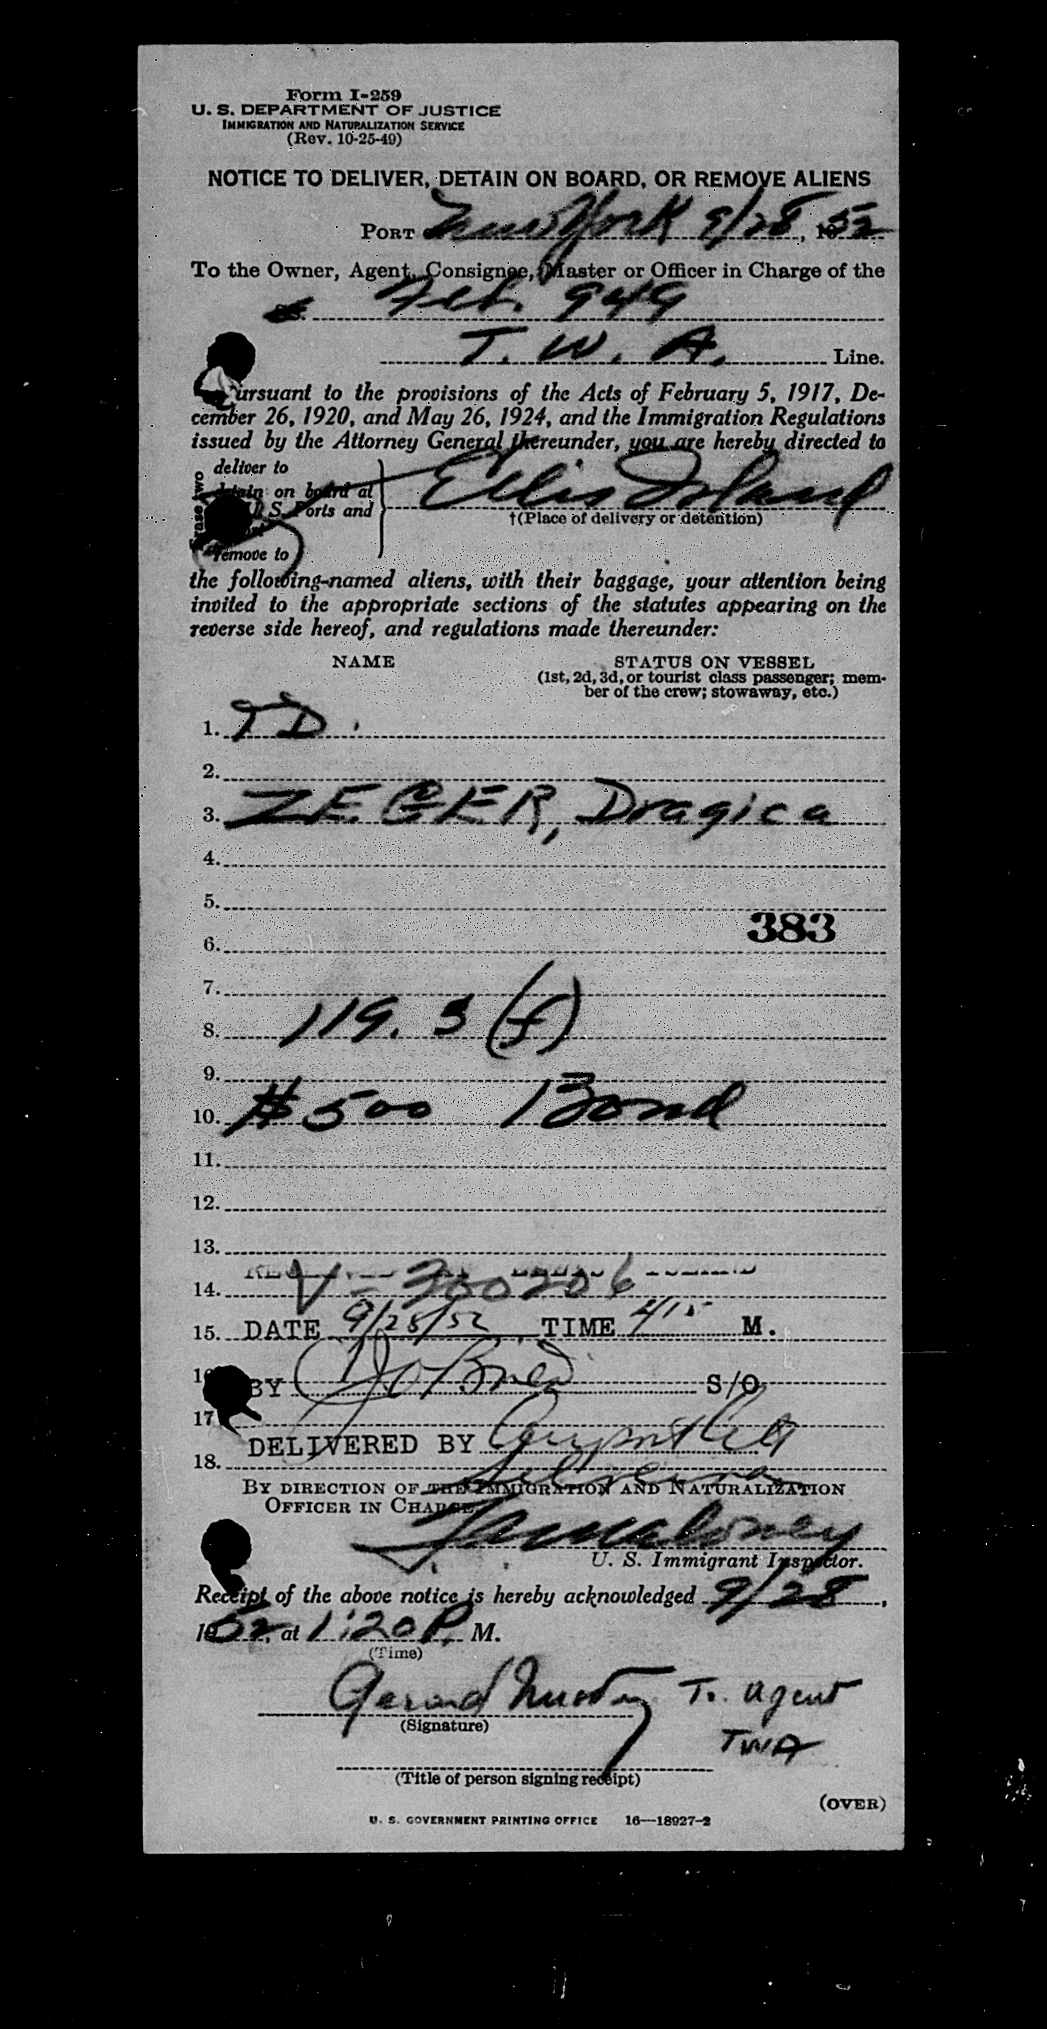 Form I-259
U. S. DEPARTMENT OF JUSTICE
IMMIGRATION AND NATURALIZATION SERVICE
(Rev. 10-25-49)
NOTICE TO DELIVER, DETAIN ON BOARD, OR REMOVE ALIENS
PORT New York 9/28, 1952
To the Owner, Agent, Consignee, Master or Officer in Charge of the
SS. Flt. 949
T. W. A. Line.
Pursuant to the provisions of the Acts of February 5, 1917, De-
cember 26, 1920, and May 26, 1924, and the Immigration Regulations
issued by the Attorney General thereunder, you are hereby directed to
deliver to
detain on board at
U. S. Ports and
remove to
Erase two
Ellis Island
†(Place of delivery or detention)
the following-named aliens, with their baggage, your attention being
invited to the appropriate sections of the statutes appearing on the
reverse side hereof, and regulations made thereunder:
NAME STATUS ON VESSEL
(1st, 2d, 3d, or tourist class passenger; mem-
ber of the crew; stowaway, etc.)
1. TD.
2.
3. ZEGER, Dragica
4.
5.
383
6.
7.
8. 119. 3 (f)
9.
10. $500 Bond
11.
12.
13.
14. V-300206
15. DATE 9/28/52, TIME 4/15 M.
16. BY O'Brien S/O
17.
DELIVERED BY
18.
BY DIRECTION OF THE IMMIGRATION AND NATURALIZATION
OFFICER IN CHARGE
Maloney
U. S. Immigrant Inspector.
Receipt of the above notice is hereby acknowledged 9/28,
1952, at 1:20 P. M.
(Time)
Gerard T. Agent
(Signature)
TWA
(Title of person signing receipt)
(OVER)
U. S. GOVERNMENT PRINTING OFFICE 16—18927-2